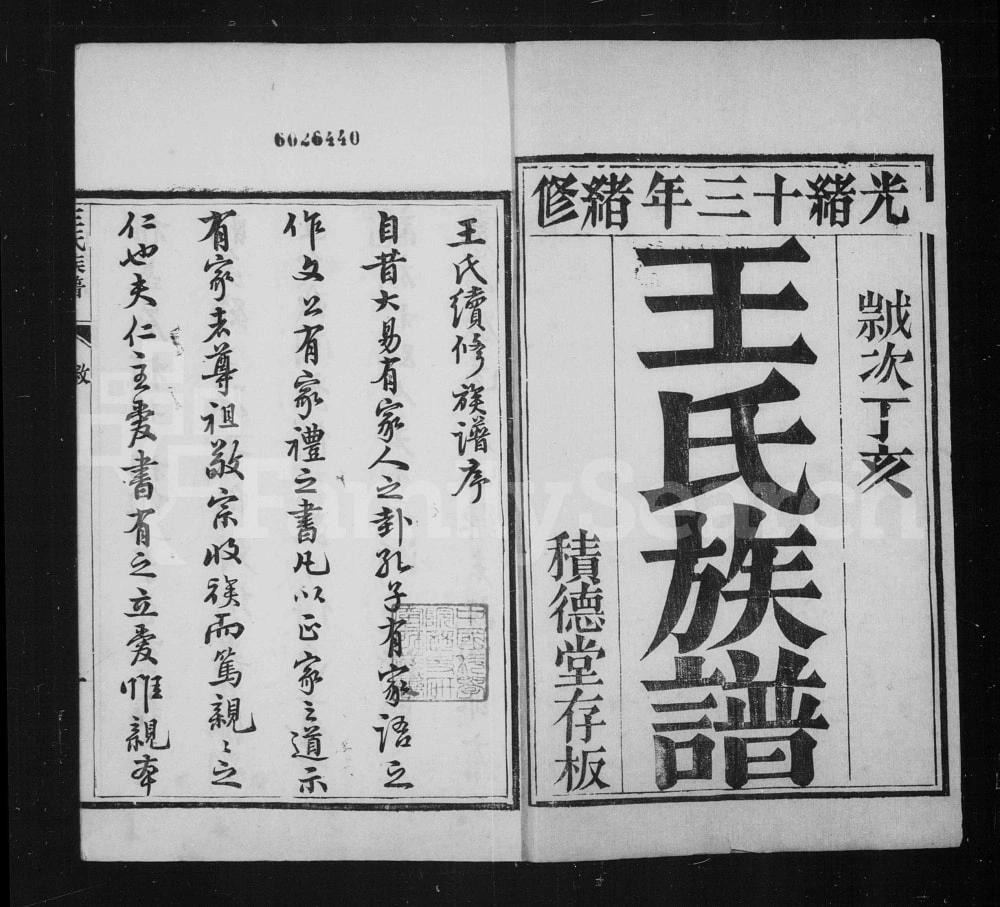 6026440
光緒十三年緒修
歲次丁亥
王氏族譜
積德堂存板
王氏續修族譜序
自昔大易有家人之卦孔子有家語之
作文公有家禮之書凡以正家之道示
有家者尊祖敬宗收族而篤親〻之
仁也夫仁主愛書有之立愛惟親本
王氏族譜
FamilySearch